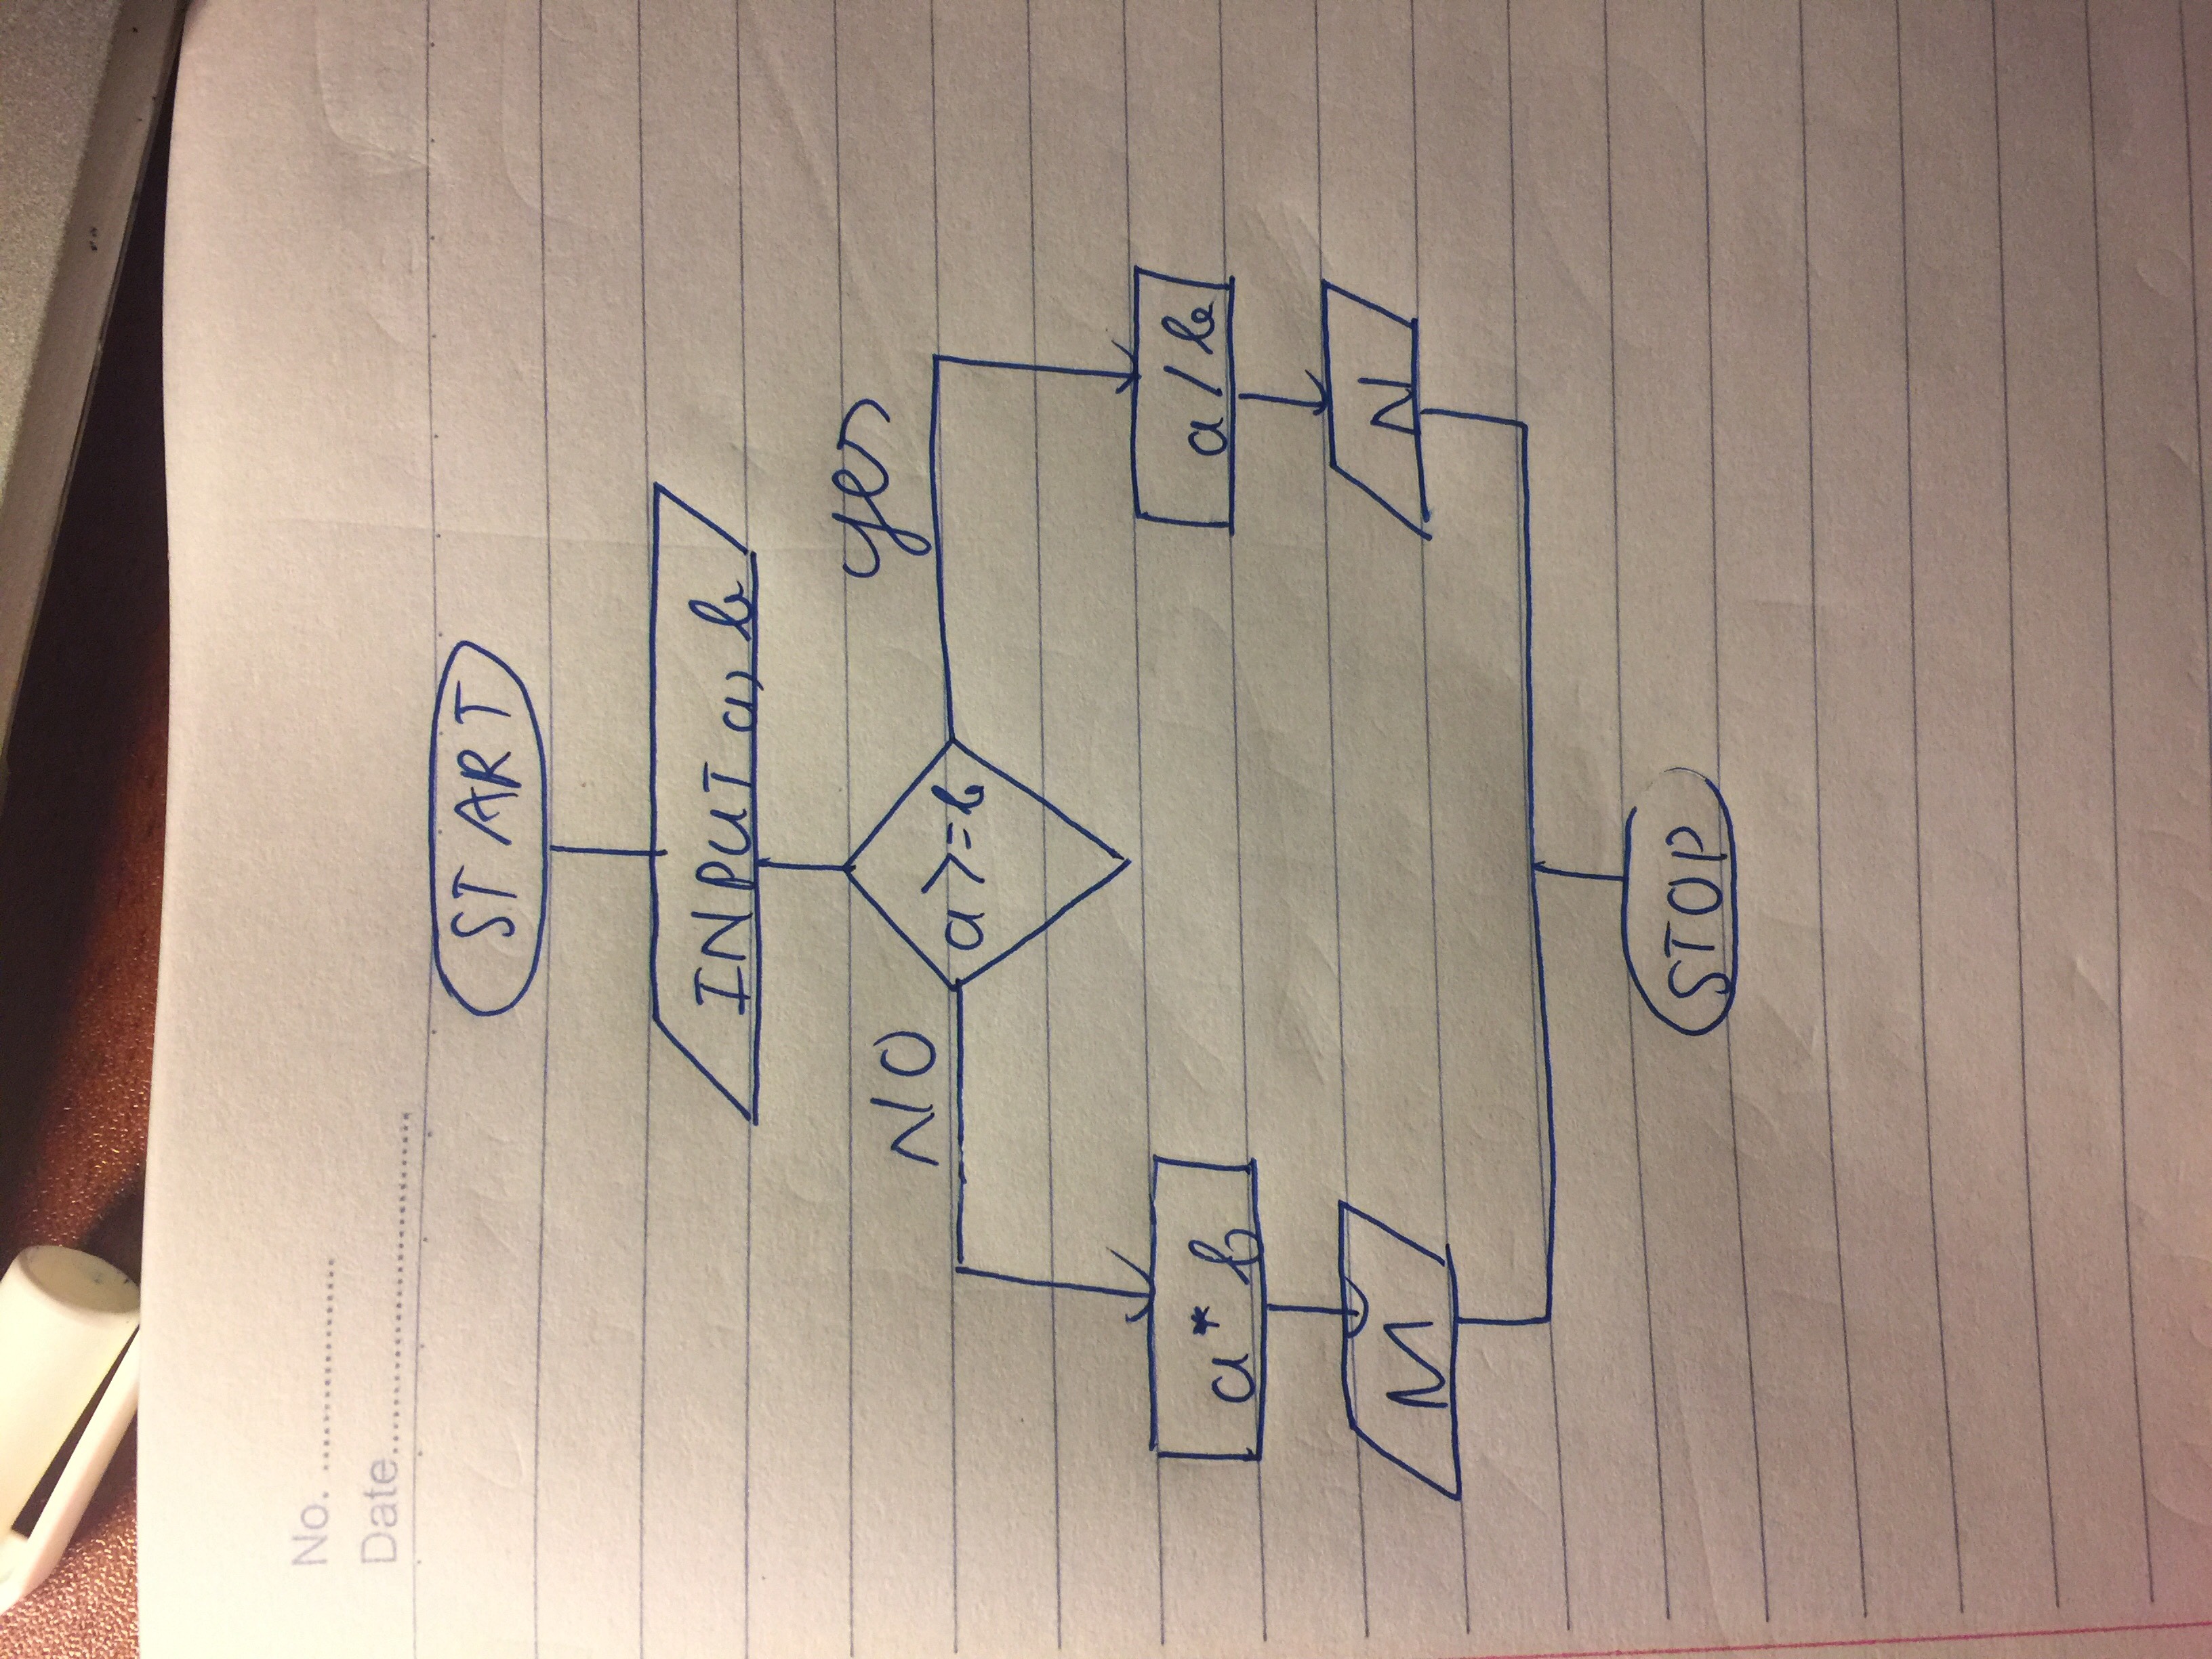 No. ..................
Date..............................
START
INPUT a, b
NO
yes
a>=b
a * b
a / b
M
N
STOP